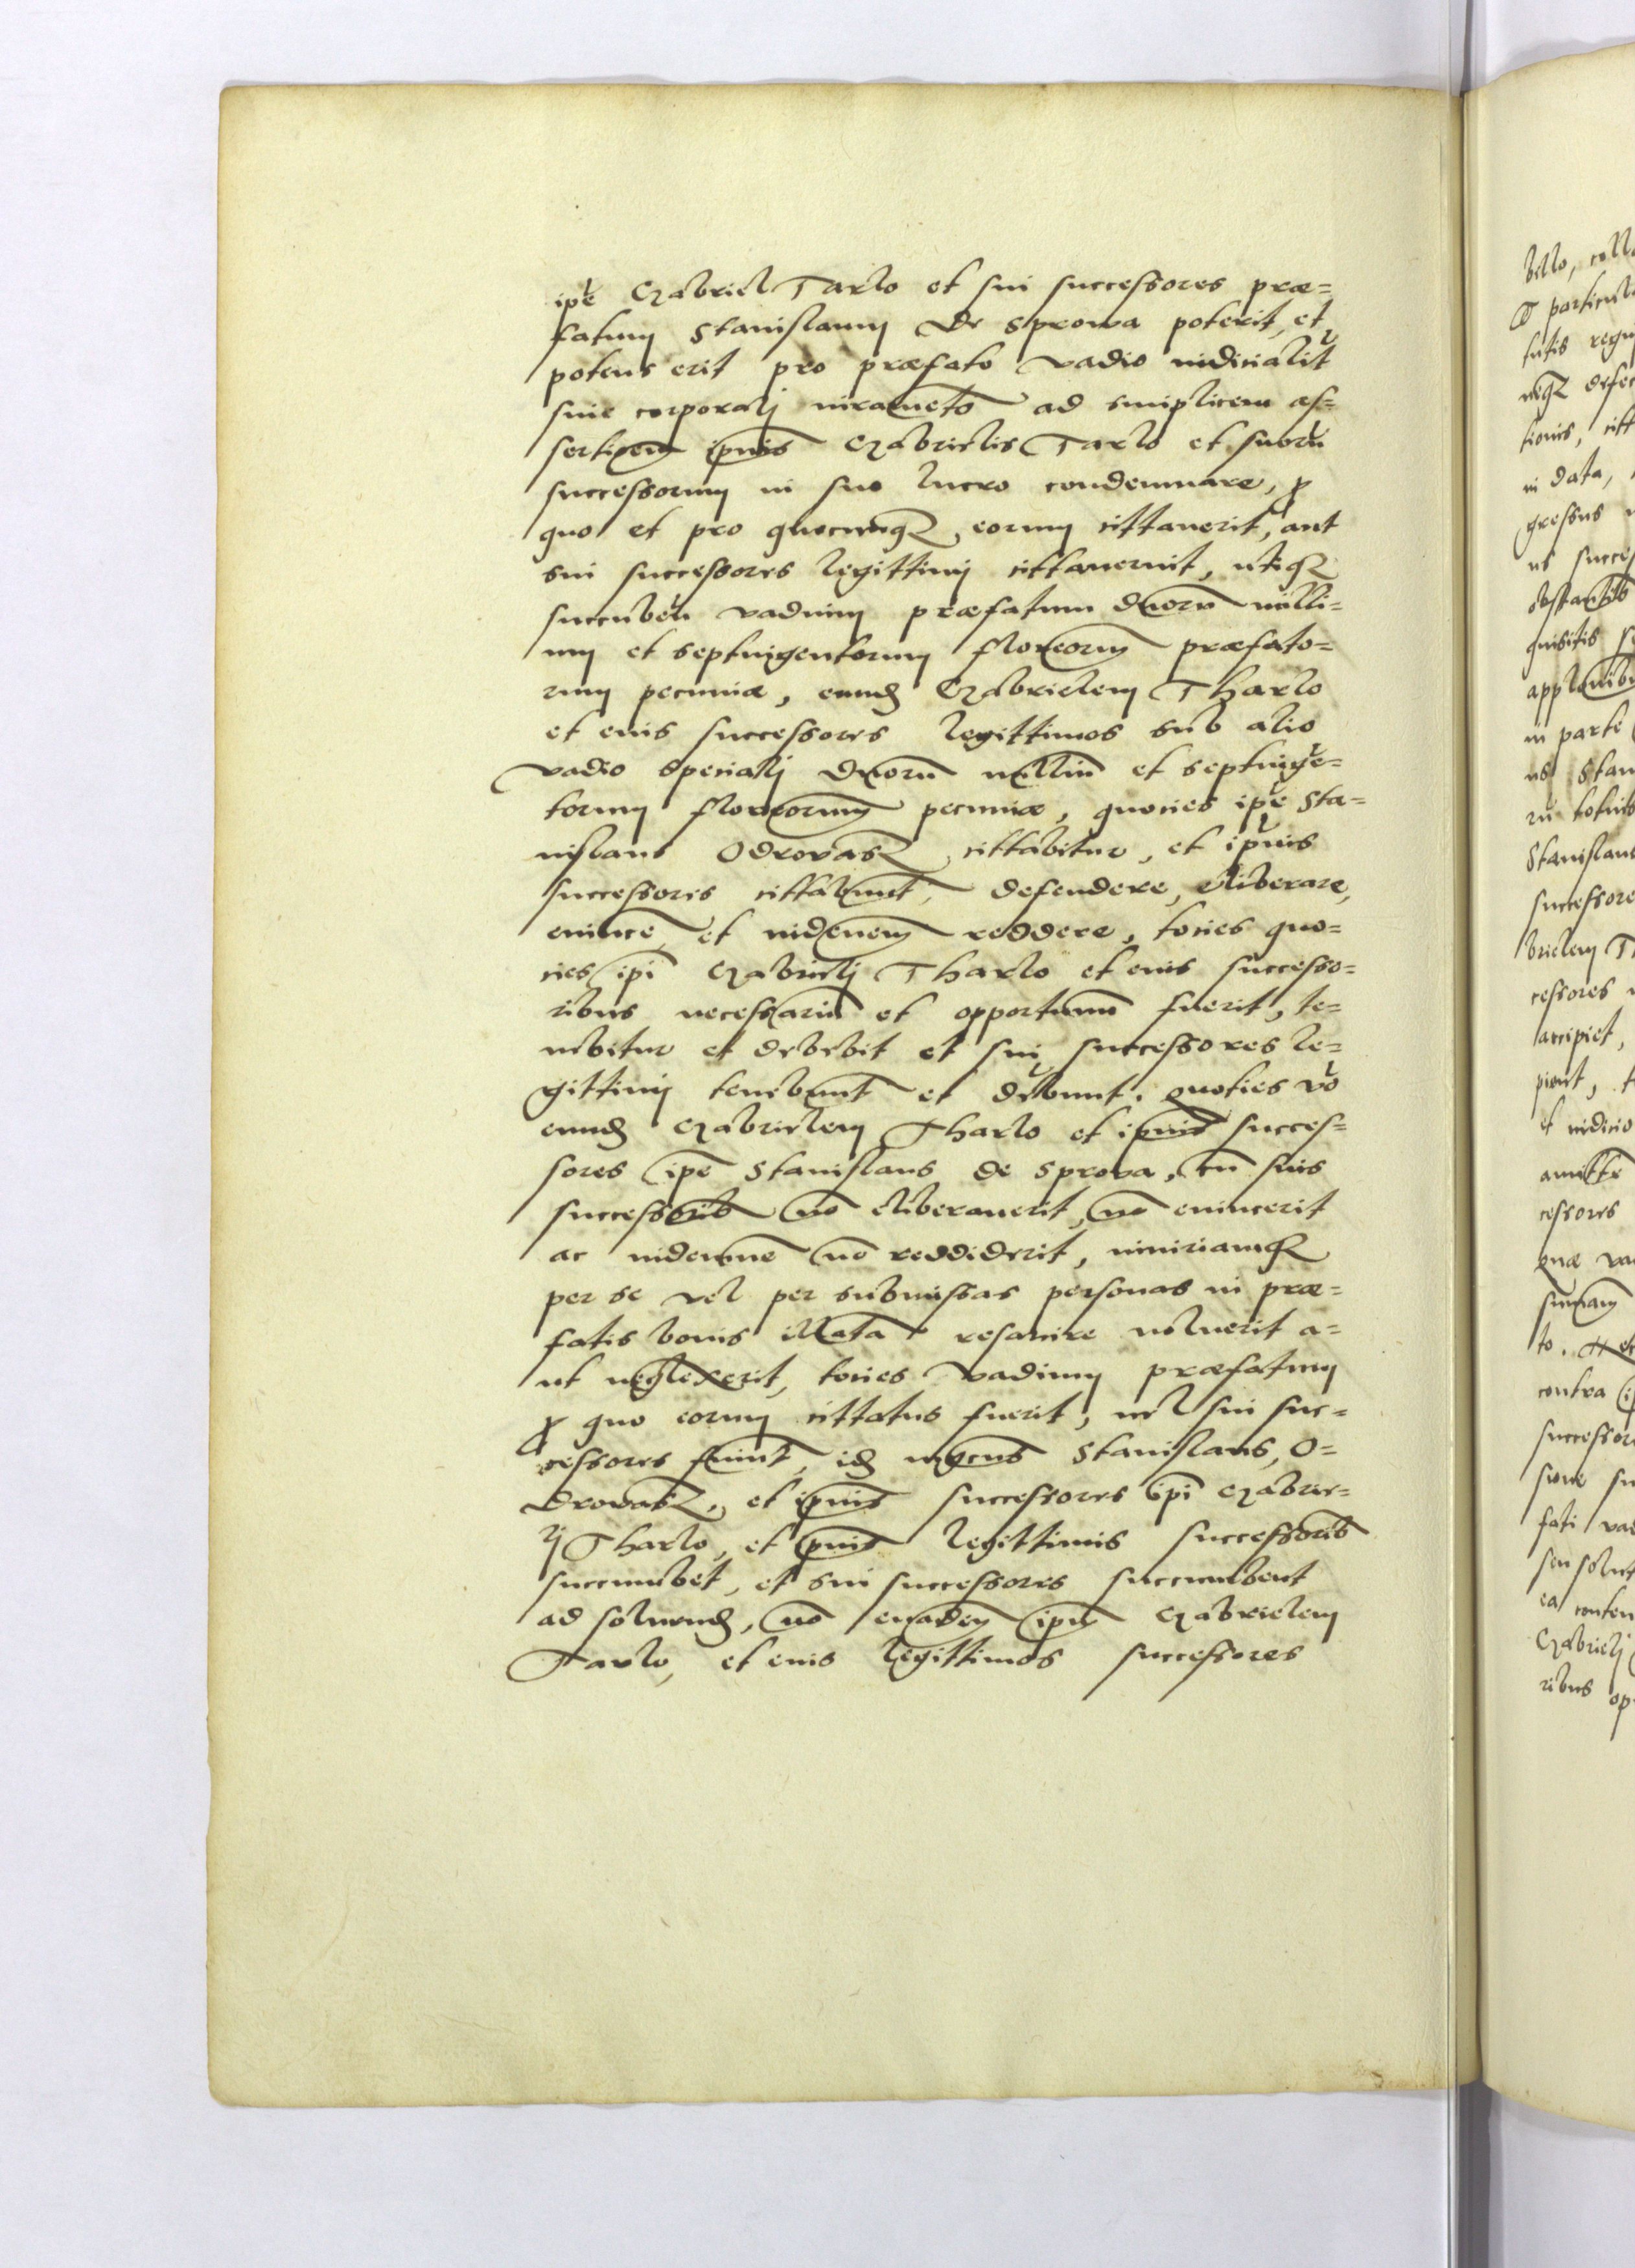 ipē Gabriel Tarlo et sui successores præ=
fatum Stanislaum de Sprowa poterit, et
potens erit pro præfato vadio iudicialit
sine corporalj iuramēto ad simplicem as=
sertionē ipius Gabrielis Tarlo et suorū
successorum in suo lucro condemnare, p
quo et pro quocunq eorum cittauerit, aut
sui successores legittimj cittauerint, utiq
succubēn vadium præfatum duorū milli=
um et septuigentorum florenorum præfato=
rum pecuniæ, eund Gabrielem Tharlo
et eius successores legittimos sub alio
vadio specialj duorū milliū et septuigē=
torum florenorum pecuniæ, quocies ipē Sta=
nislaus Odrovasz cittabitur, et ipius
successores cittabunt, defendere, eliberare,
euincē, et indemnem reddere, tocies quo=
cies ipi Gabrielj Tharlo et eius successo=
ribus necessariū et opportunū fuerit, te=
nebitur et debebit et sui successores le=
gittimj tenebunt et debunt. quoties vō
eund Gabrielem Tharlo et ipius succes=
sores ipē Stanislaus de Sprova, cū suis
successorib nō eliberauerit, nō euincerit
ac indemnē nō reddiderit, iniuriamq
per se vel per submissas personas in præ=
fatis bonis illatā resarcire noluerit a=
ut neglexerit, tocies vadium præfatum
p quo eorum cittatus fuerit, vel sui suc=
cessores fuint, id Stanislaus, O=
drovasz, et ipius successores ipi Gabrie=
lj Tharlo, et ipius legittimis successorib
succumbet, et sui successores succumbent
ad soluend, nō euaden ipm Gabrielem
Tarlo, et eius legittimos successores
bello,
particul
tutis regn
neq defec
tionis, citt
in data,
gressus
ut succes
obstantib
quisitis
in parte
us Stan
rū totius
Stanislaus
successore
brielem T
cessores
accipiet,
pient,
et iudicio
amitte
cessores
quæ va
summam
to. et
contra
successor
sione su
fati vad
seu solut
ea conten
Gabrielj
ribus op